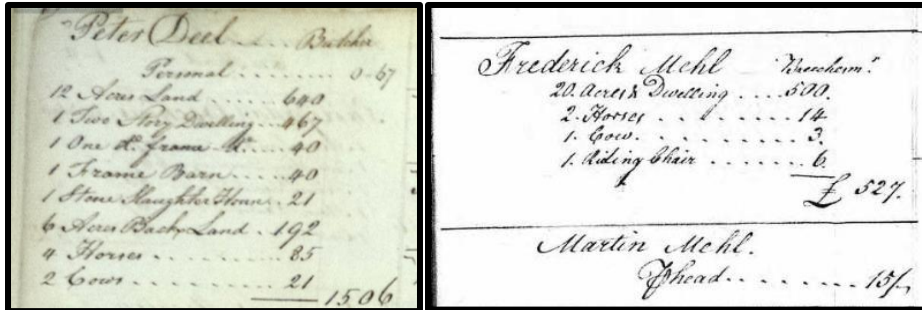 Peter Deel .... Butcher
Personal ........ 0-67
12 Acres Land ...... 640
1 Two Story Dwelling .. 467
1 One do. frame do. .... 40
1 Frame Barn .... 40
1 Stone Slaughter House . 21
6 Acres Back Land . 192
4 Horses ........ 85
2 Cows ........ 21
1506
Frederick Mehl Breechesmr.
20. Acres & Dwelling .... 500.
2. Horses ....... 14
1. Cow ........ 3.
1. Riding Chair ....... 6.
£ 527.
Martin Mehl.
head ........ 15/-